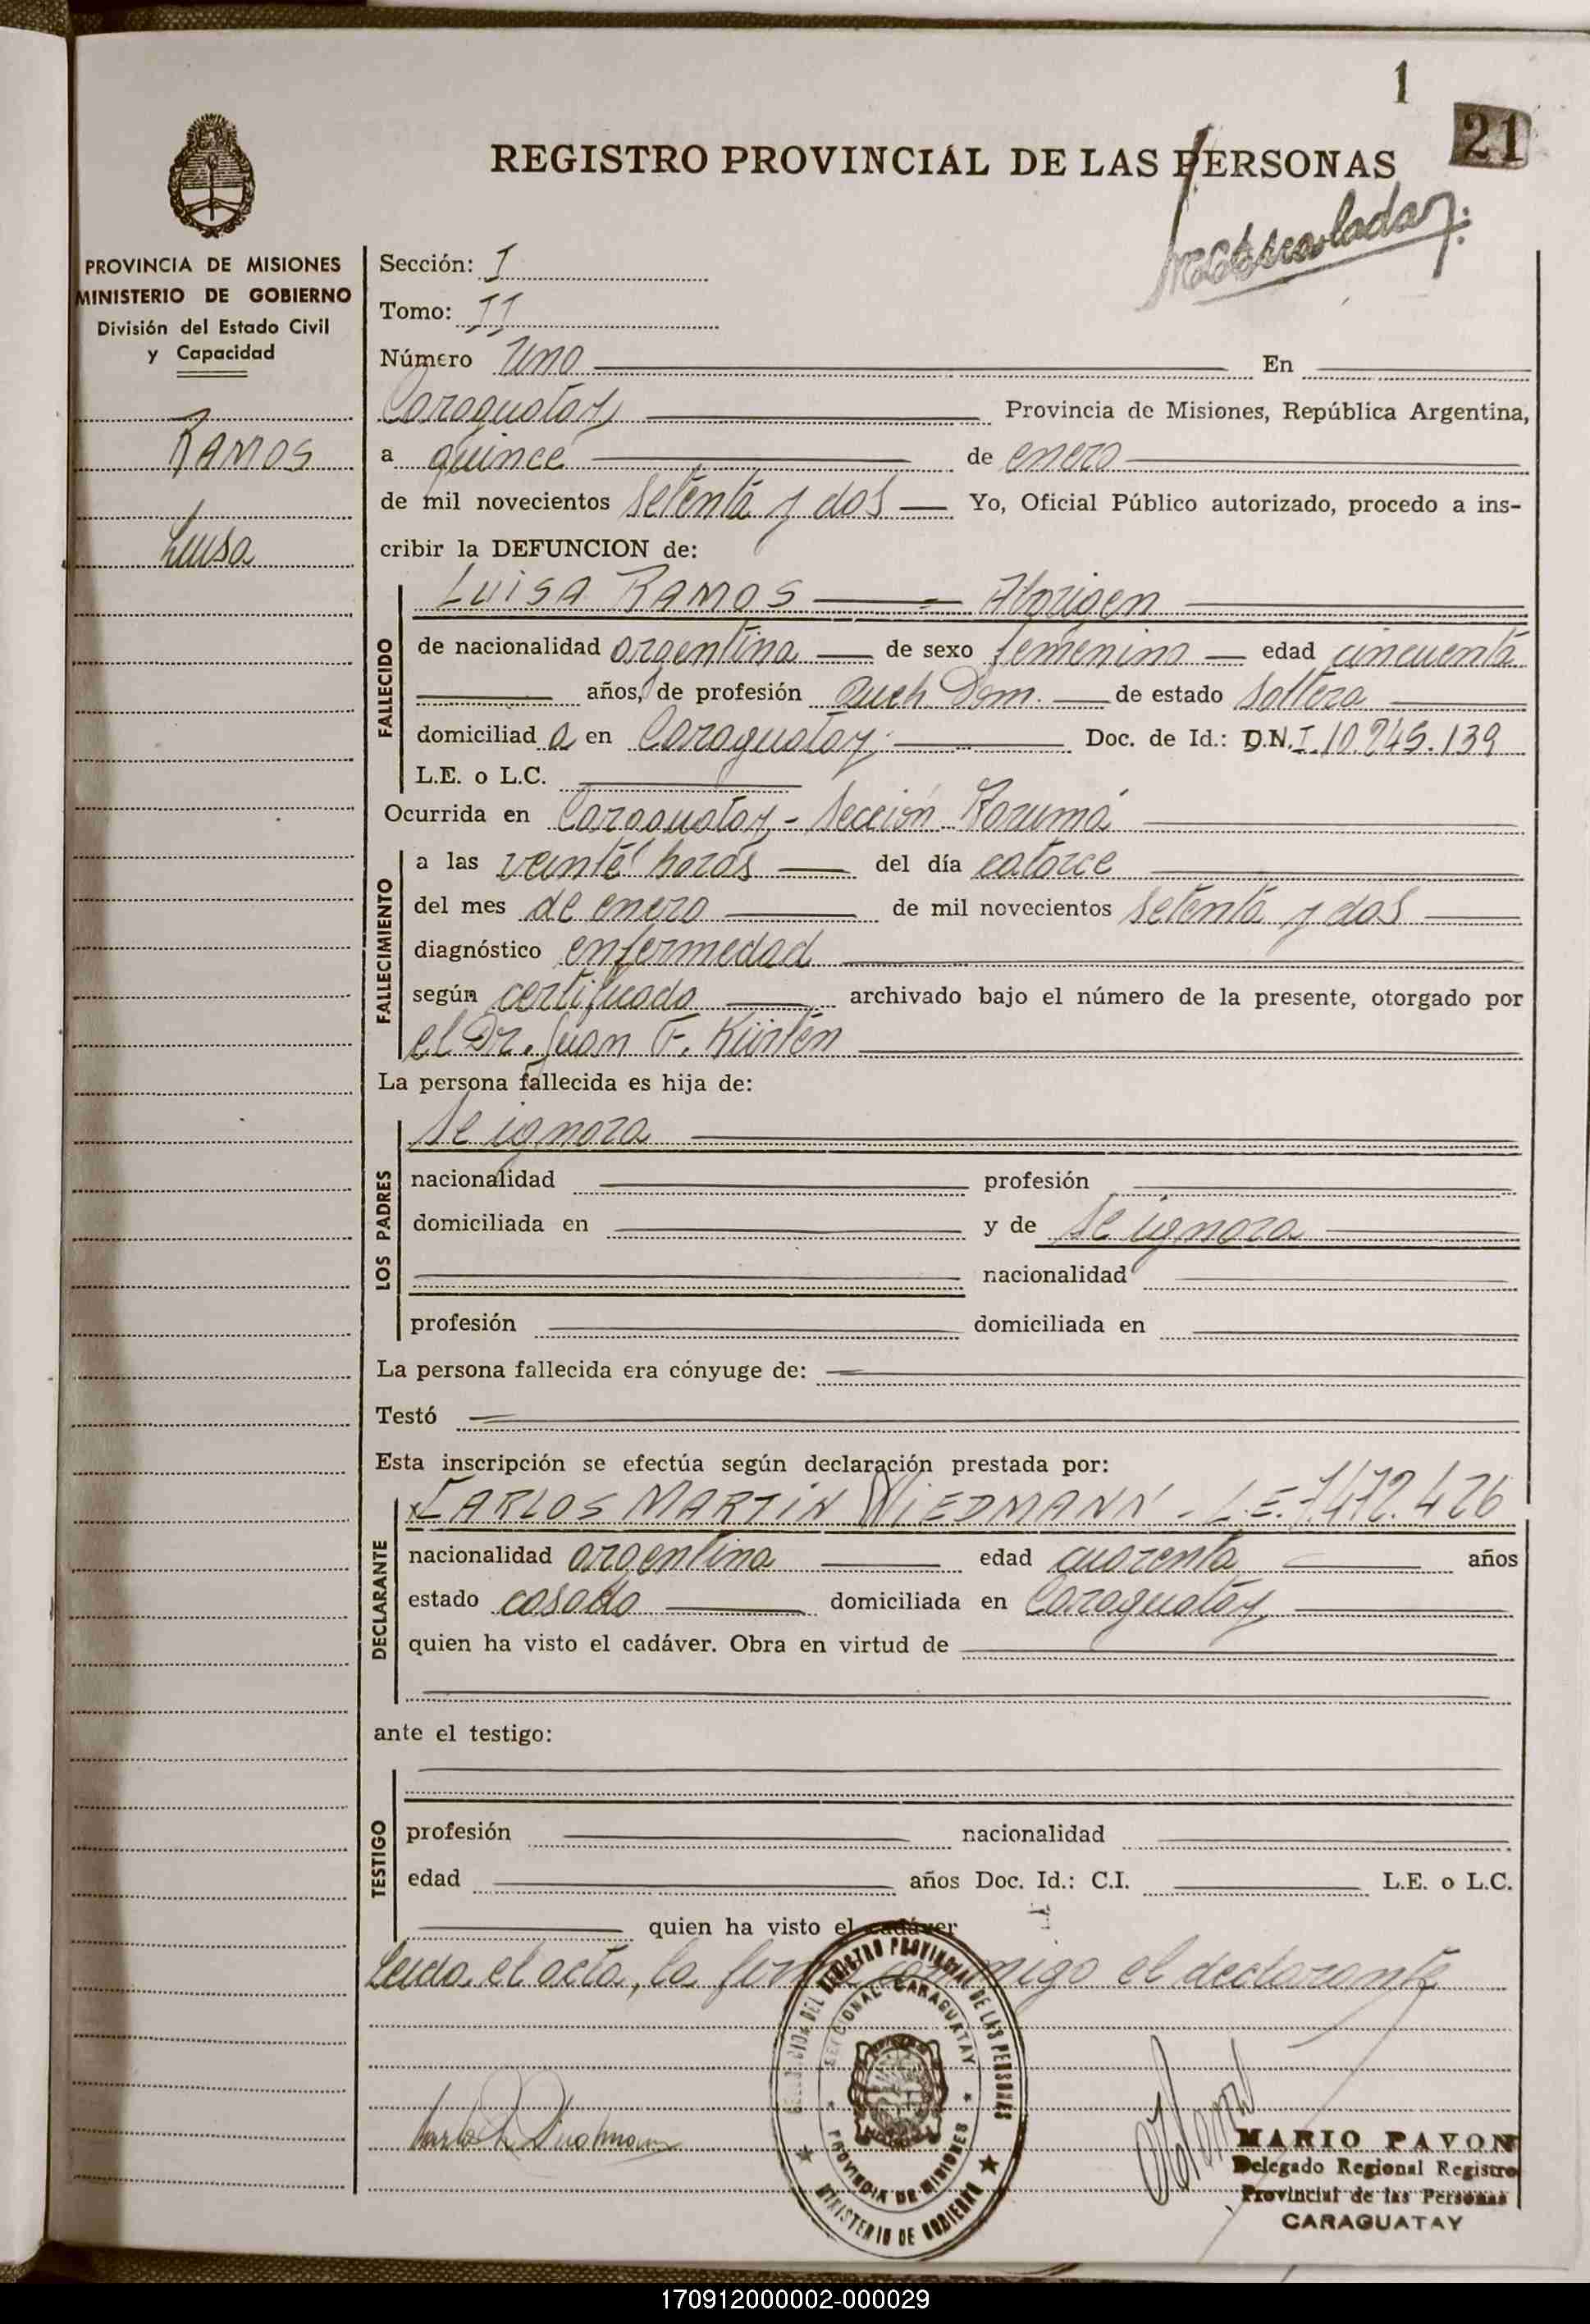 1
21
REGISTRO PROVINCIAL DE LAS PERSONAS
PROVINCIA DE MISIONES
MINISTERIO DE GOBIERNO
División del Estado Civil
y Capacidad
RAMOS
Luisa
Sección: I
Tomo: II
Número Uno En
Caraguatay Provincia de Misiones, República Argentina,
a quince de enero
de mil novecientos setenta y dos Yo, Oficial Público autorizado, procedo a ins-
cribir la DEFUNCION de:
FALLECIDO
LUISA RAMOS - Aborigen
de nacionalidad argentina de sexo femenino edad cincuenta
años, de profesión Queh. Dom. de estado soltera
domiciliad a en Caraguatay Doc. de Id.: D.N.I. 10.245.139
L.E. o L.C.
Ocurrida en Caraguatay - Sección Tarumá
FALLECIMIENTO
a las veinte horas del día catorce
del mes de enero de mil novecientos setenta y dos
diagnóstico enfermedad
según certificado archivado bajo el número de la presente, otorgado por
el Dr. Juan F. Kürten
La persona fallecida es hija de:
LOS PADRES
Se ignora
nacionalidad profesión
domiciliada en y de Se ignora
nacionalidad
profesión domiciliada en
La persona fallecida era cónyuge de:
Testó
Esta inscripción se efectúa según declaración prestada por:
DECLARANTE
CARLOS MARTIN WIEDMANN - L.E. 7.472.426
nacionalidad argentina edad cuarenta años
estado casado domiciliada en Caraguatay
quien ha visto el cadáver. Obra en virtud de
ante el testigo:
TESTIGO
profesión nacionalidad
edad años Doc. Id.: C.I. L.E. o L.C.
quien ha visto el cadáver
Leída el acta, la firma conmigo el declarante
DEL REGISTRO PROVINCIAL DE LAS PERSONAS
SECCIONAL CARAGUATAY
PROVINCIA DE MISIONES
MINISTERIO DE GOBIERNO
MARIO PAVON
Delegado Regional Registro
Provincial de las Personas
CARAGUATAY
170912000002-000029